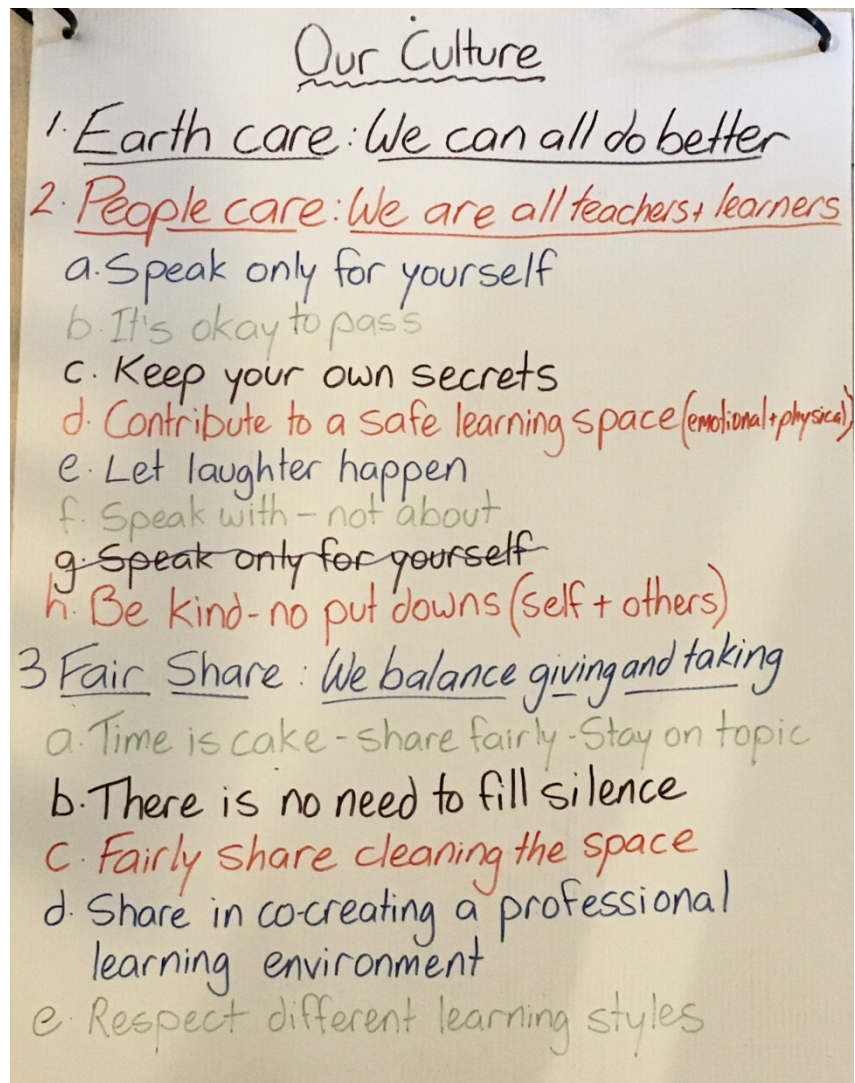 Our Culture
1. Earth care: We can all do better
2. People care: We are all teachers + learners
a. Speak only for yourself
b. It's okay to pass
c. Keep your own secrets
d. Contribute to a safe learning space (emotional + physical)
e. Let laughter happen
f. Speak with - not about
g. Speak only for yourself
h. Be kind - no put downs (self + others)
3 Fair Share: We balance giving and taking
a. Time is cake - share fairly - Stay on topic
b. There is no need to fill silence
c. Fairly share cleaning the space
d. Share in co-creating a professional
learning environment
e. Respect different learning styles